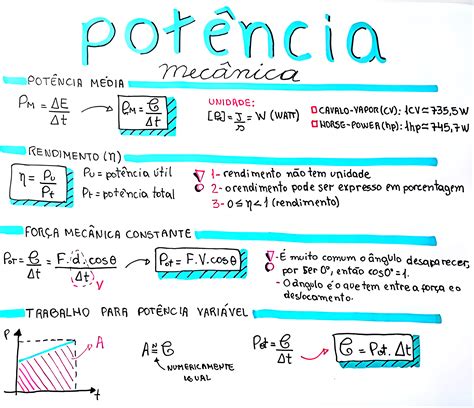 potência
mecânica
POTÊNCIA MÉDIA
PM = ΔE/Δt → PM = Ꞇ/Δt
UNIDADE:
[P] = J/s = W (WATT)
CAVALO-VAPOR(CV): 1CV ≅ 735,5W
HORSE-POWER(hp): 1hp ≅ 745,7W
RENDIMENTO (η)
η = Pu/Pt
Pu = potência útil
Pt = potência total
1- rendimento não tem unidade
2- o rendimento pode ser expresso em porcentagem
3- 0 ≤ η < 1 (rendimento)
FORÇA MECÂNICA CONSTANTE
Pot = Ꞇ/Δt = F.d.cosθ/Δt V → Pot = F.V.cosθ
- É muito comum o ângulo desaparecer,
por ser 0°, então cos0° = 1.
- O ângulo é o que tem entre a força e o
deslocamento.
TRABALHO PARA POTÊNCIA VARIÁVEL
P
A
t
A ≅ᴺ Ꞇ
NUMERICAMENTE
IGUAL
Pot = Ꞇ/Δt → Ꞇ = Pot. Δt